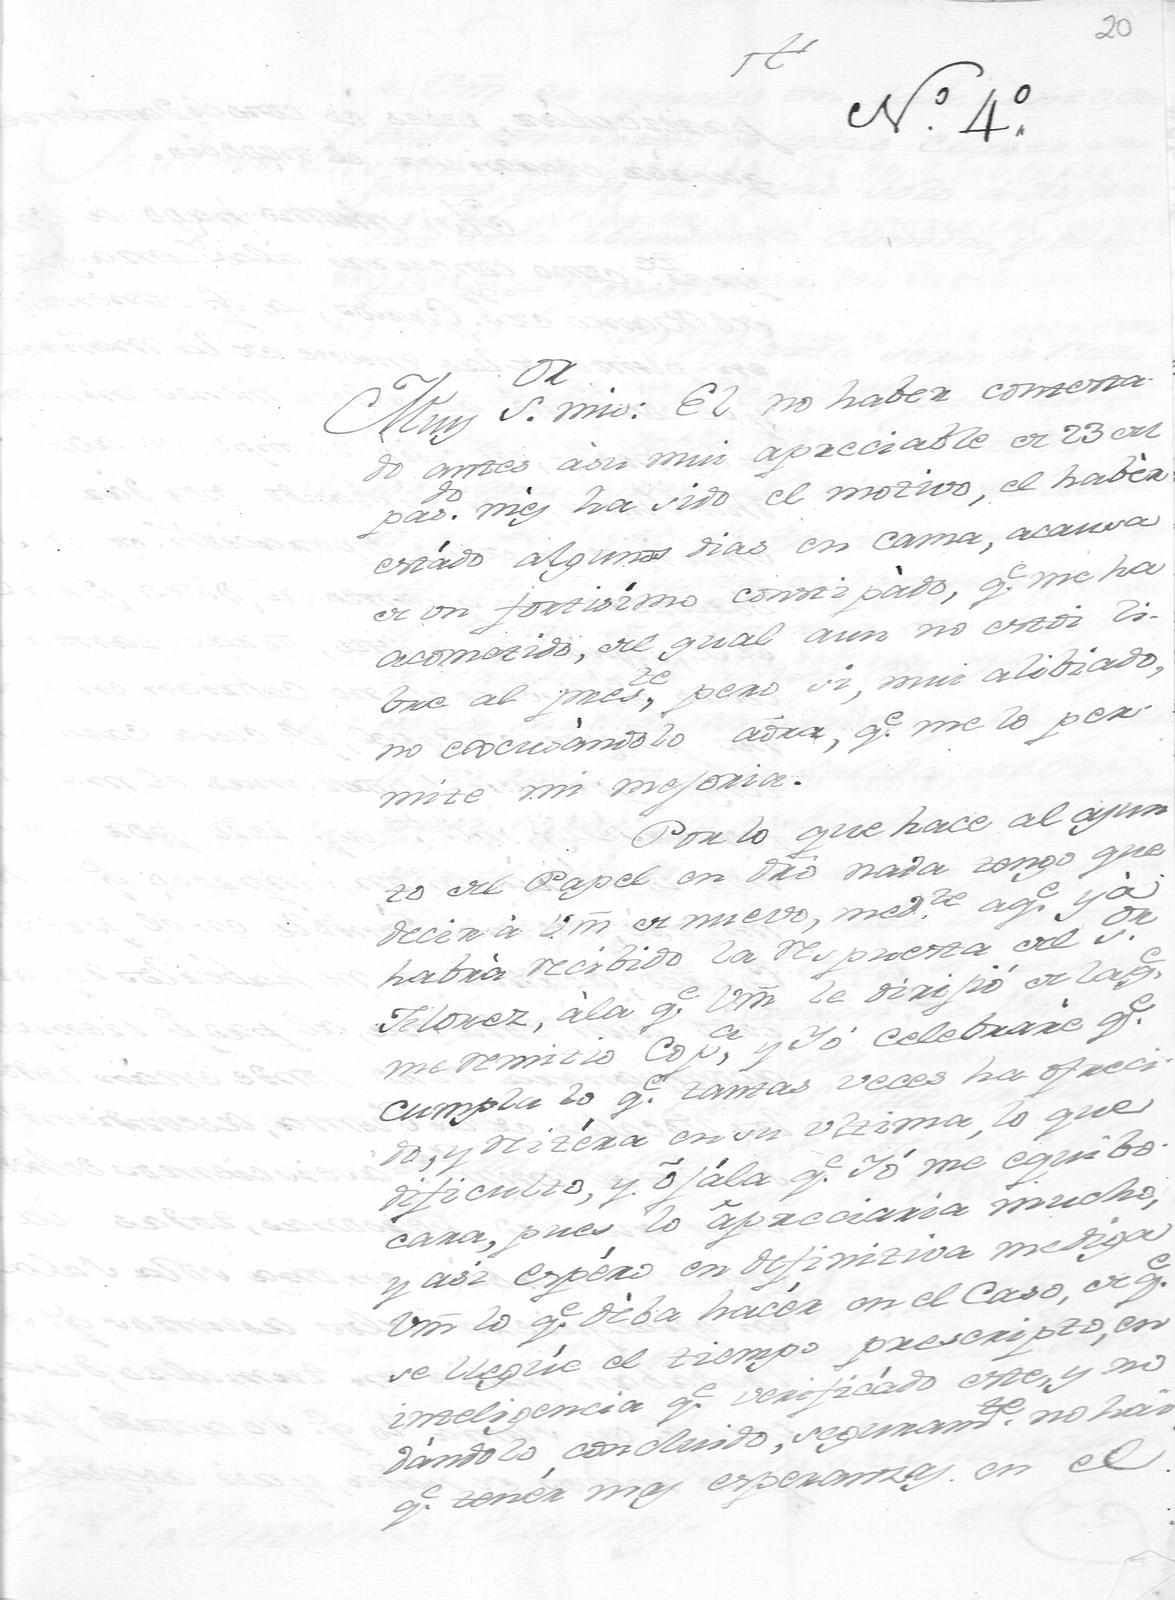 20
N.º 4.º
Muy S.or mio: El no haber contesta-
do antes àsu mui apreciable de 23 del
pas.do mes ha sido el motivo, el habèr
estádo algunos dias en cama, acausa
de un fortisímo constipàdo, q.e me ha
acometido, del qual aun no estoi li-
bre al pres.te, pero si, mui alibiado,
no escusàndolo aõra, q.e me lo per-
mite mi mejoria.
Por lo que hace al asun
to del Papel en dr̃o nada tengo que
decir à Vm̃ de nuevo, med.te aq.e yà
habrà recibido la respuesta del S.or
Florez, àla q.e Vm̃ le dirijió de laq.e
me remitio Cop.a, y Yó celebrarè q.e
cumpla lo q.e tantas veces ha ofreci-
do, y reitéra en su ultima, lo que
dificulto, y õjála q.e Yó me equibo-
cara, pues lo apreciaria mucho,
y asi espéro en definitiva mediga
Vm̃ lo q.e dèba hacér en el Caso, de q.e
se llegúe el tiempo prescripto, en
inteligencia q.e verificádo este, y no
dàndolo concluido, seguram.te no hai
q.e tenér mas esperanzas en el